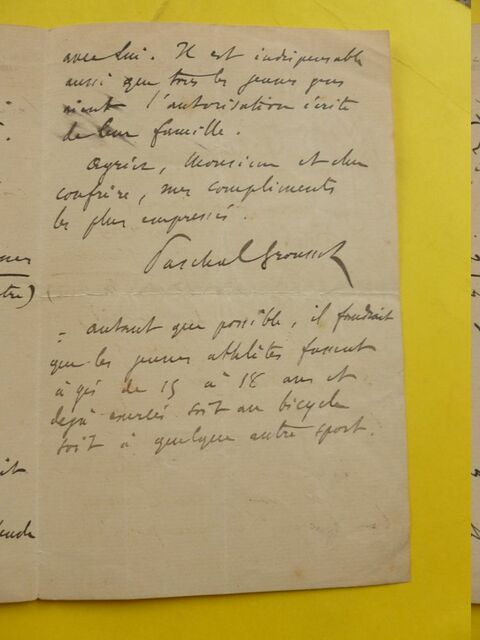 avec lui. Il est indispensable
aussi que tous les jeunes gens
aient l'autorisation écrite
de leur famille.
Agréez, Monsieur et cher
confrère, mes compliments
les plus empressés.
Paschal Grousset
- autant que possible, il faudrait
que les jeunes athlètes fussent
âgés de 15 à 18 ans et
déjà exercés soit au bicycle
soit à quelque autre sport.
tre)
it